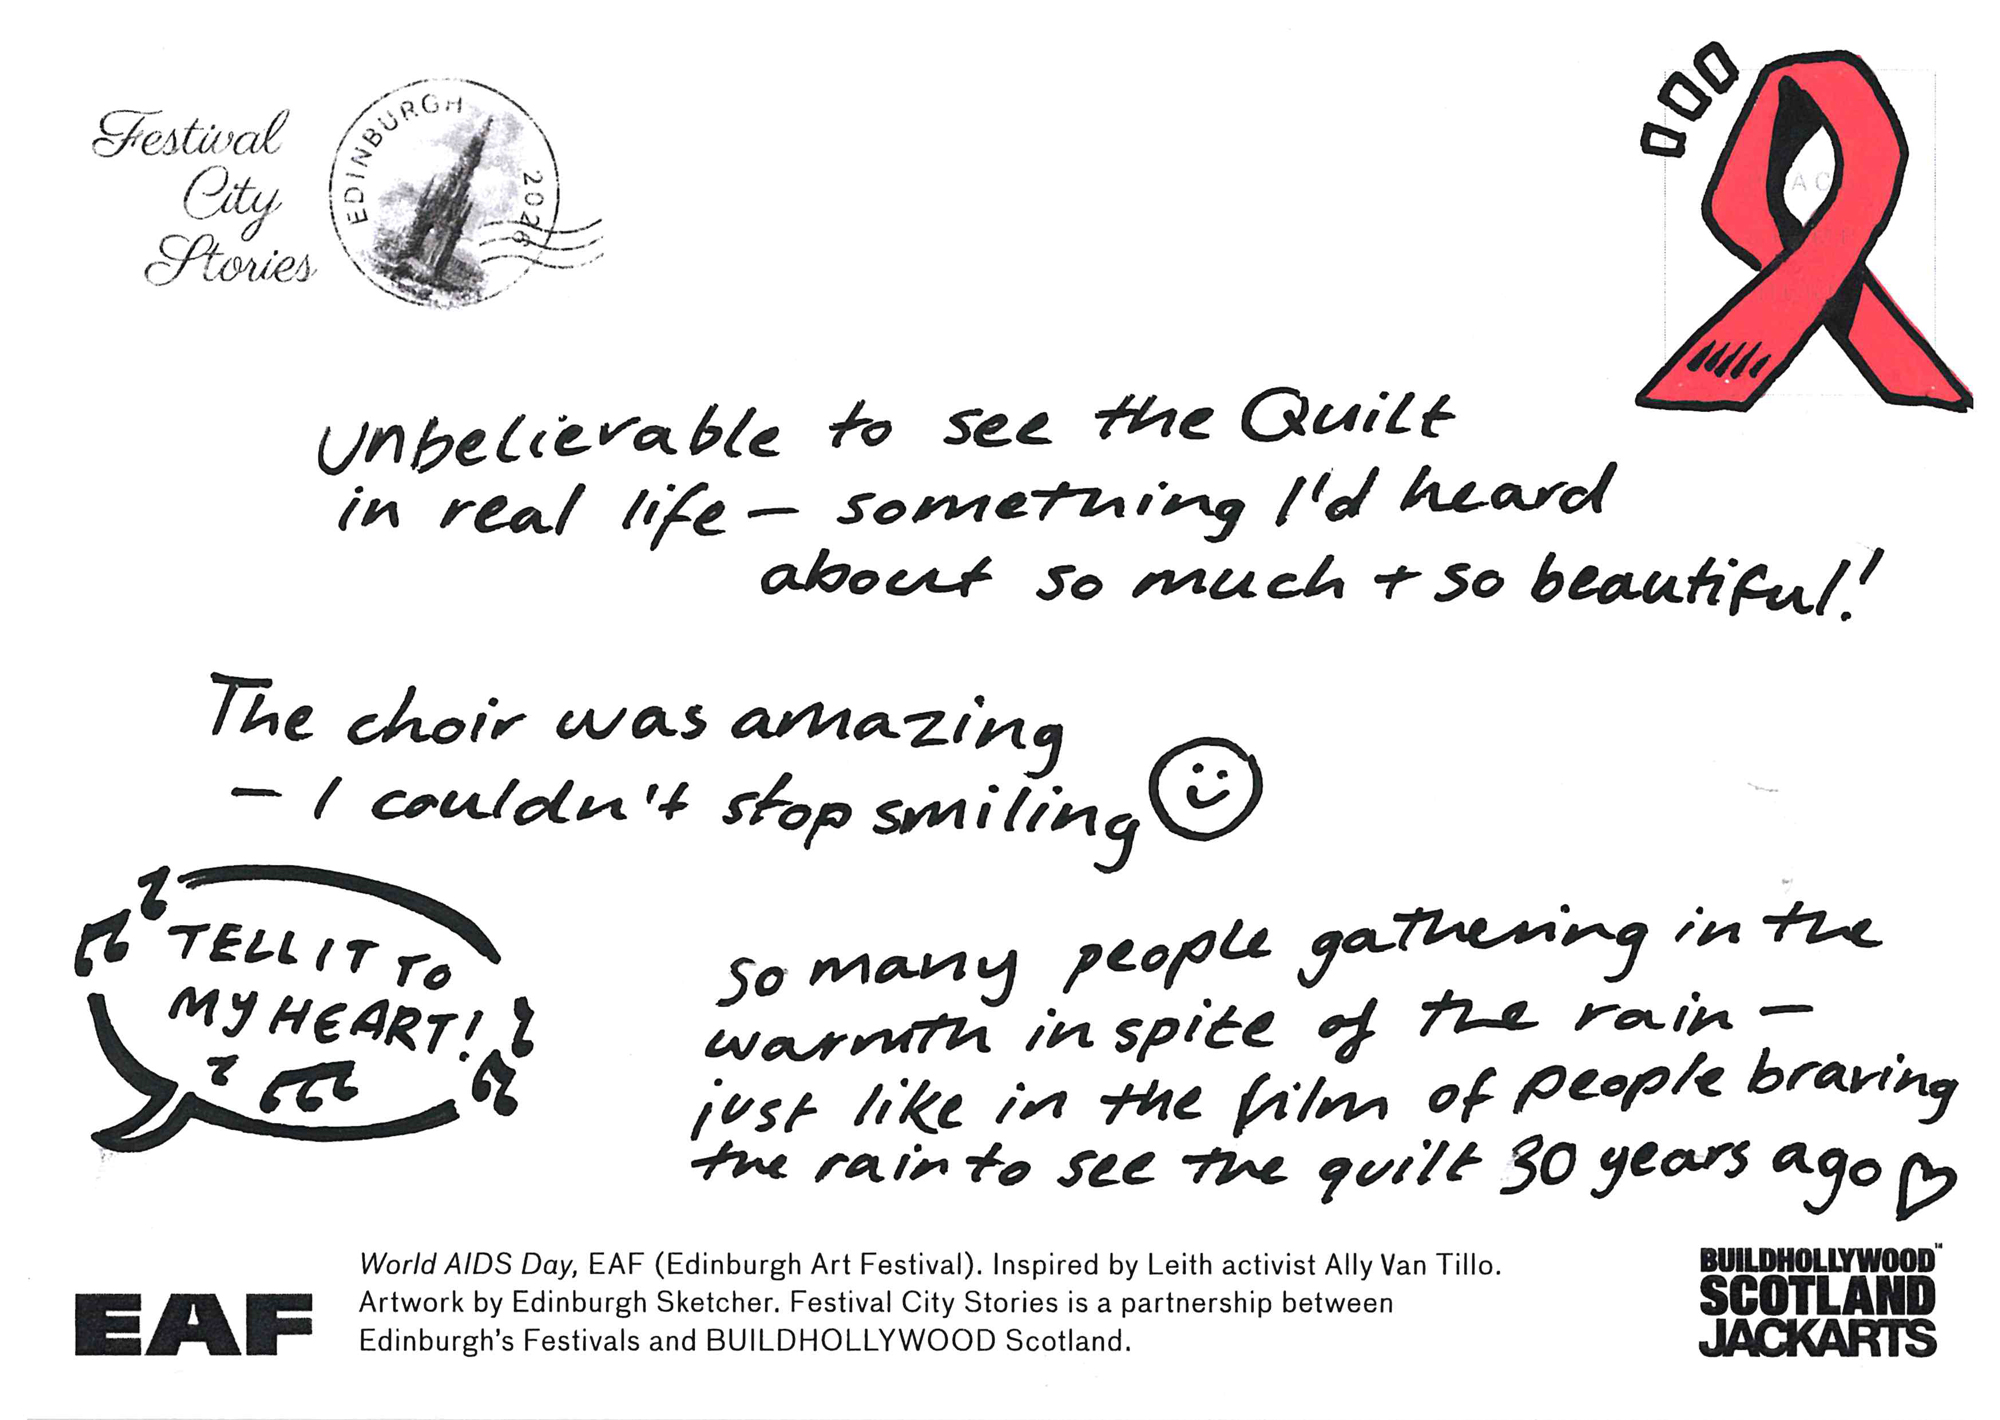 Festival
City
Stories
EDINBURGH 2026
Unbelievable to see the Quilt
in real life – something I'd heard
about so much + so beautiful!
The choir was amazing
– I couldn't stop smiling
TELL IT TO
MY HEART!
So many people gathering in the
warmth in spite of the rain –
just like in the film of people braving
the rain to see the quilt 30 years ago
World AIDS Day, EAF (Edinburgh Art Festival). Inspired by Leith activist Ally Van Tillo.
Artwork by Edinburgh Sketcher. Festival City Stories is a partnership between
Edinburgh's Festivals and BUILDHOLLYWOOD Scotland.
EAF
BUILDHOLLYWOOD™
SCOTLAND
JACKARTS